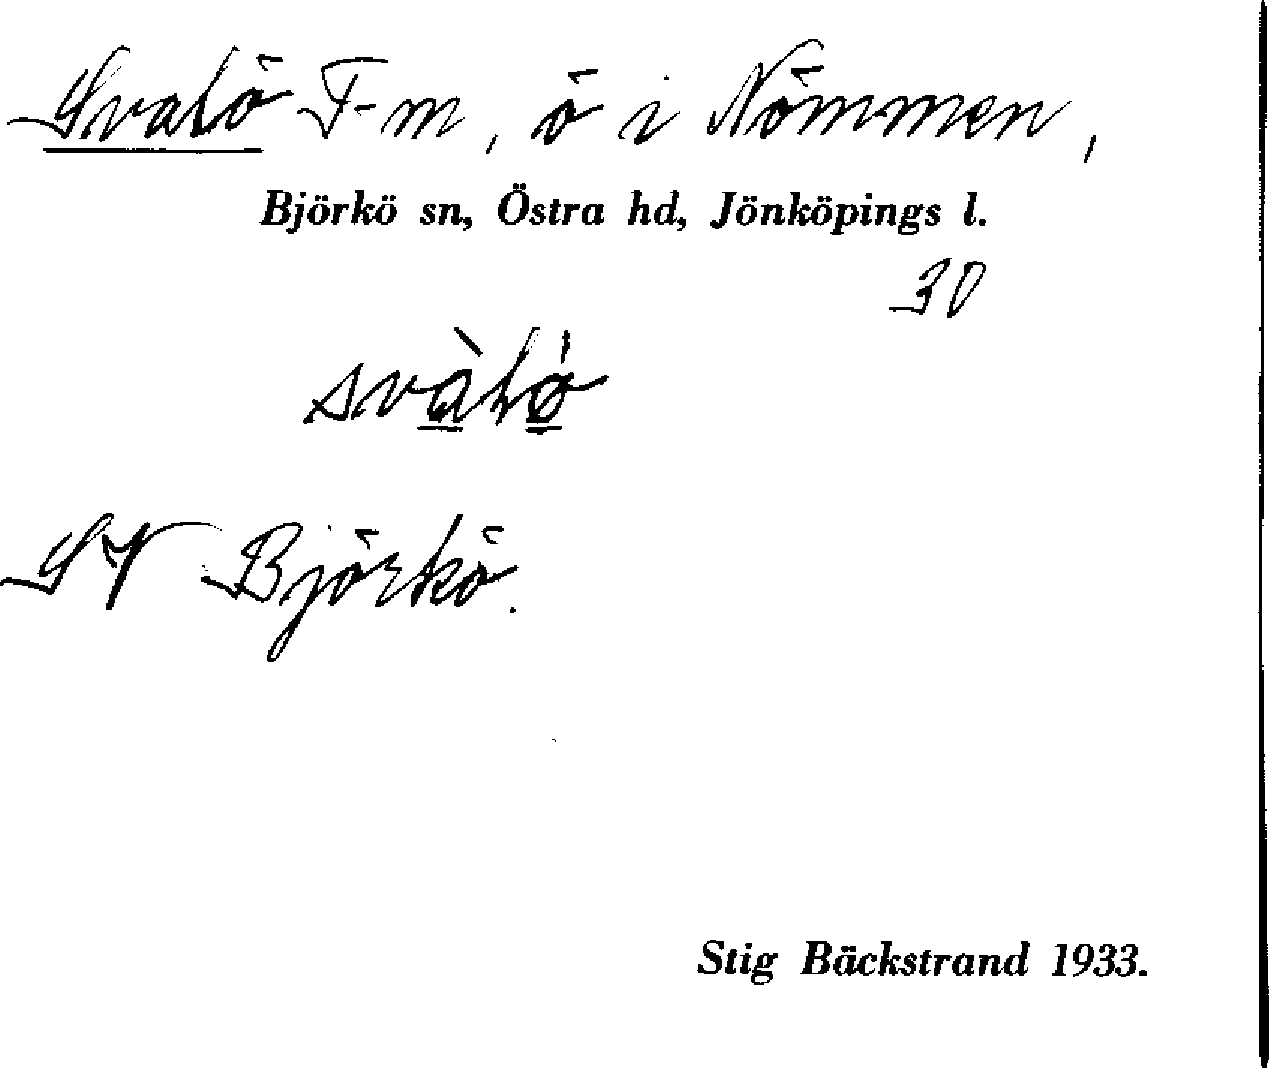 Svalö F-m, ö i Nömmen,
Björkö sn, Östra hd, Jönköpings l.
30
svàlö̀
SV Björkö.
Stig Bäckstrand 1933.